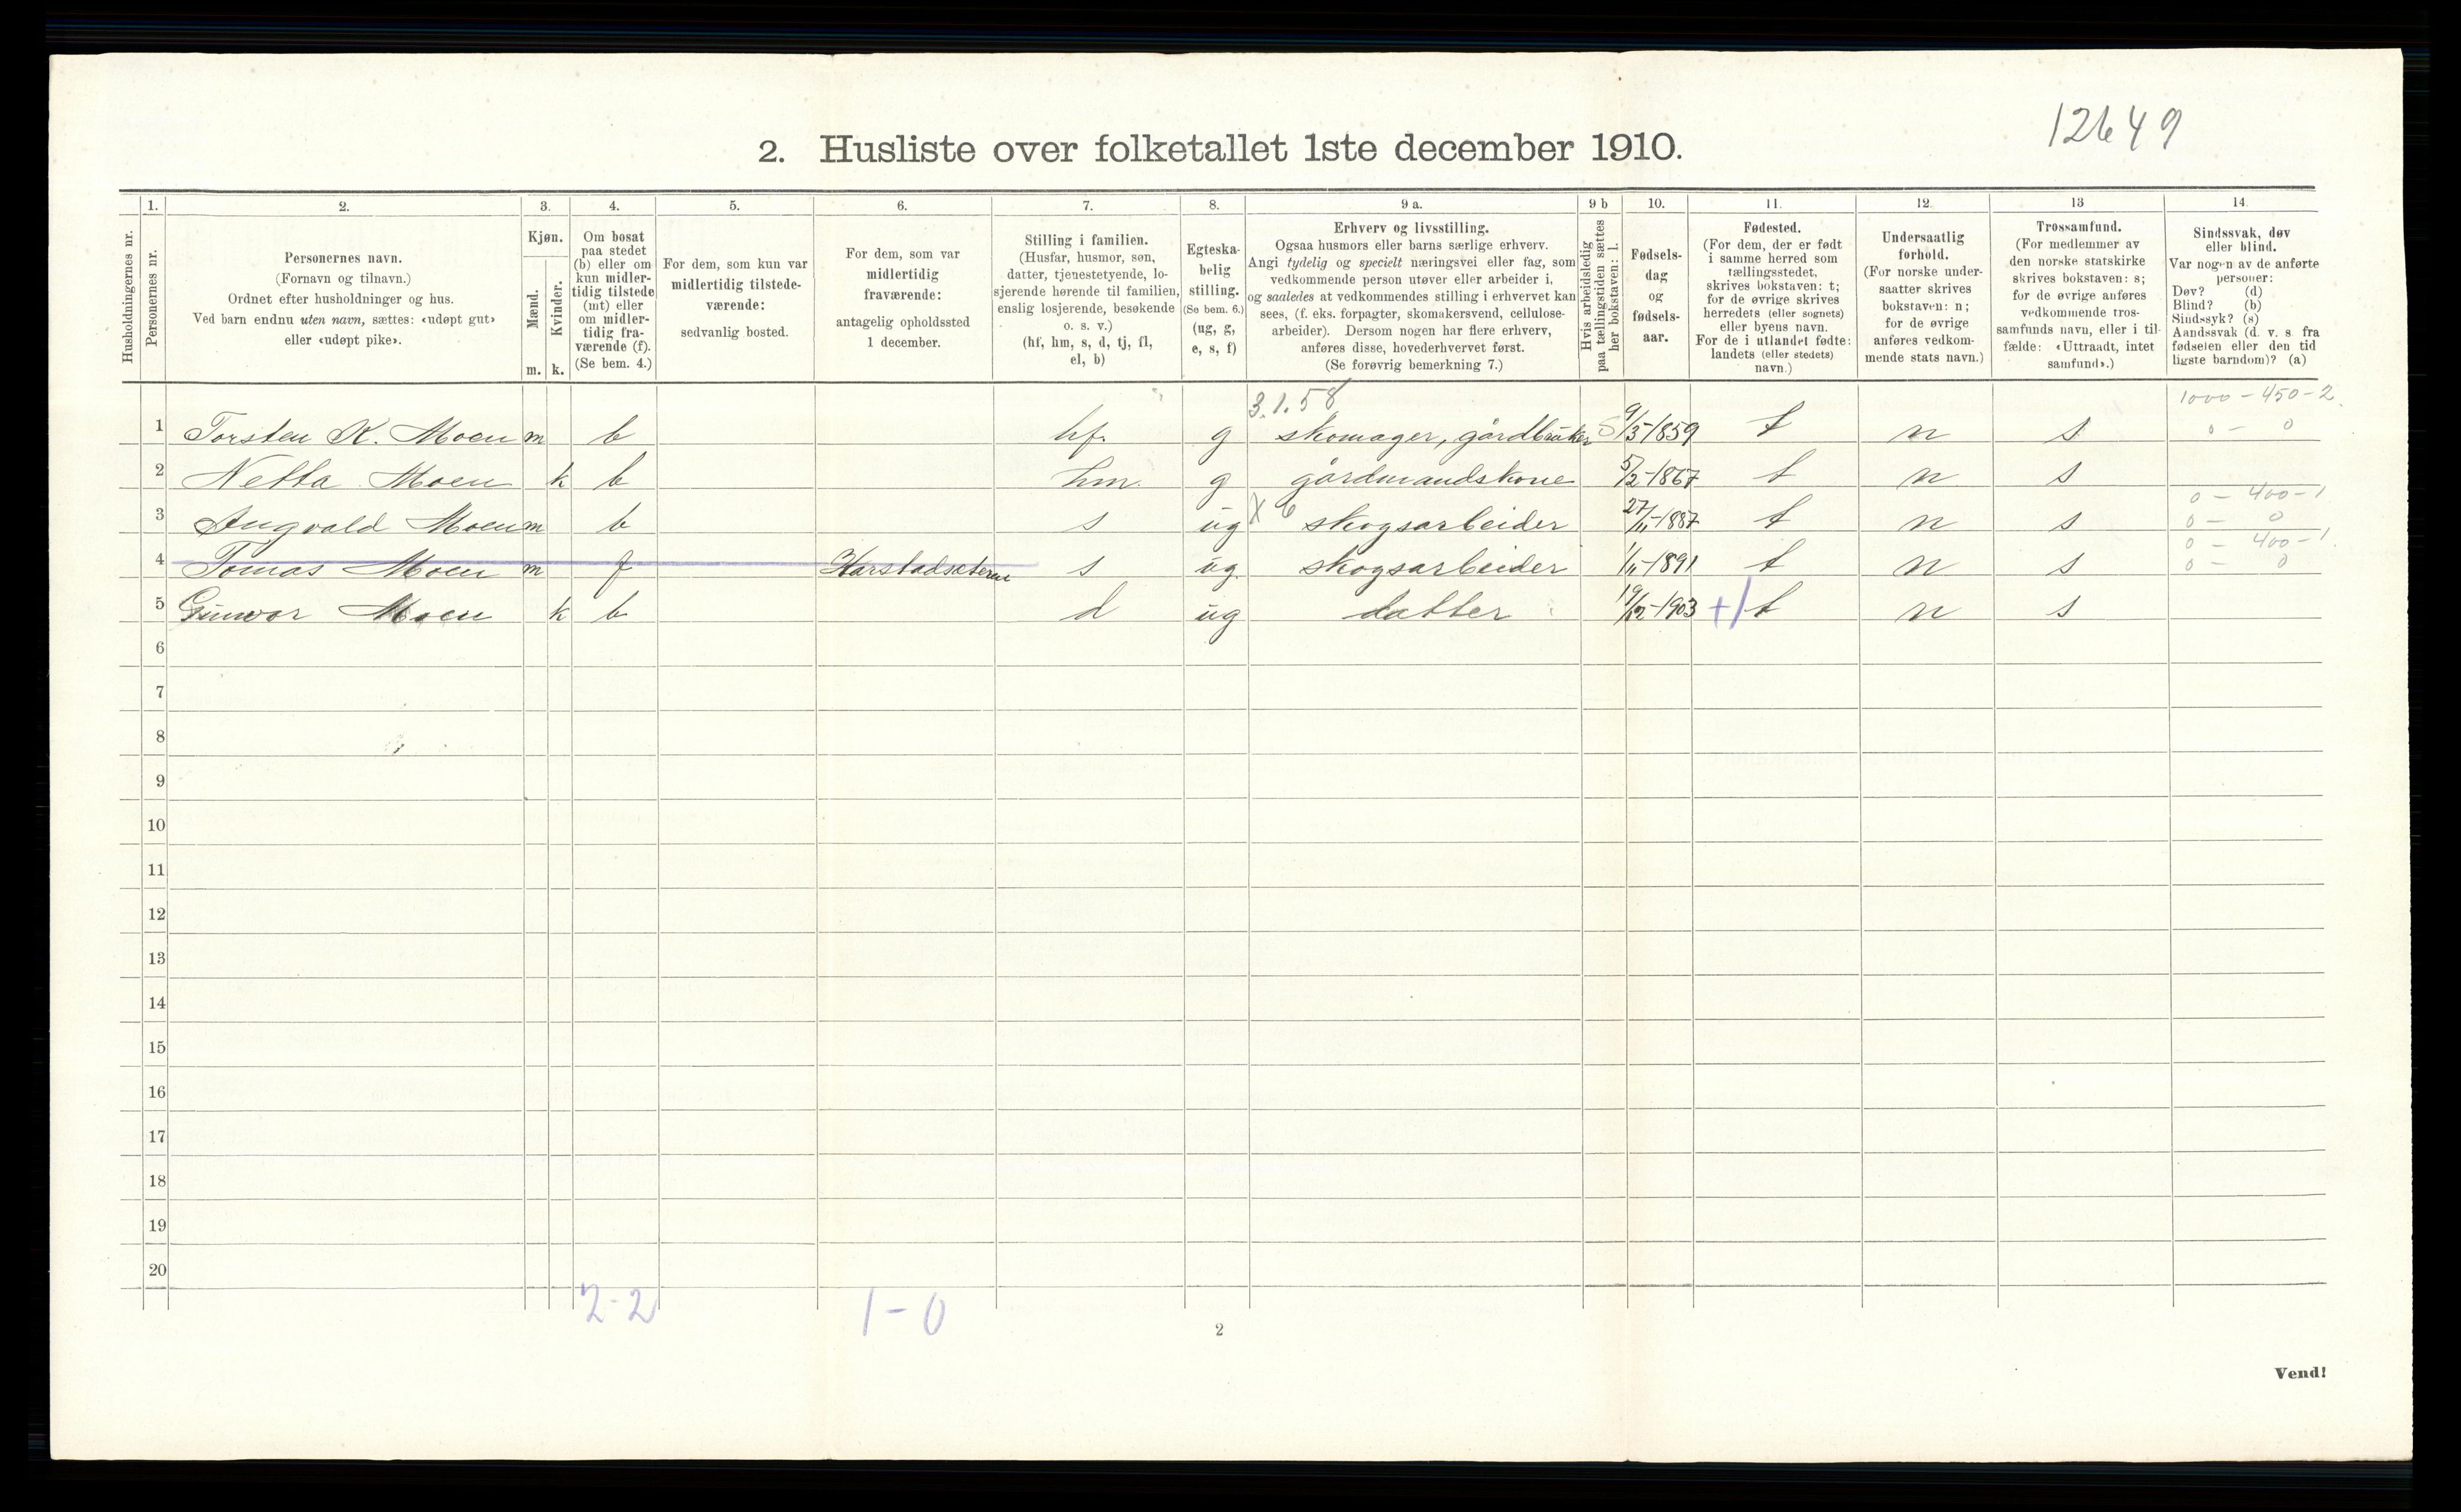 12649
2. Husliste over folketallet 1ste december 1910.
Husholdningernes nr.
1. Personernes nr.
2.
Personernes navn.
(Fornavn og tilnavn.)
Ordnet efter husholdninger og hus.
Ved barn endnu uten navn, sættes: «udøpt gut»
eller «udøpt pike».
3.
Kjøn.
Mænd. Kvinder.
m. k.
4.
Om bosat
paa stedet
(b) eller om
kun midler-
tidig tilstede
(mt) eller
om midler-
tidig fra-
værende (f).
(Se bem. 4.)
5.
For dem, som kun var
midlertidig tilstede-
værende:
sedvanlig bosted.
6.
For dem, som var
midlertidig
fraværende:
antagelig opholdssted
1 december.
7.
Stilling i familien.
(Husfar, husmor, søn,
datter, tjenestetyende, lo-
sjerende hørende til familien,
enslig losjerende, besøkende
o. s. v.)
(hf, hm, s, d, tj, fl,
el, b)
8.
Egteska-
belig
stilling.
(Se bem. 6.)
(ug, g,
e, s, f)
9 a.
Erhverv og livsstilling.
Ogsaa husmors eller barns særlige erhverv.
Angi tydelig og specielt næringsvei eller fag, som
vedkommende person utøver eller arbeider i,
og saaledes at vedkommendes stilling i erhvervet kan
sees, (f. eks. forpagter, skomakersvend, cellulose-
arbeider). Dersom nogen har flere erhverv,
anføres disse, hovederhvervet først.
(Se forøvrig bemerkning 7.)
9 b
Hvis arbeidsledig
paa tællingstiden sættes
her bokstaven: l.
10.
Fødsels-
dag
og
fødsels-
aar.
11.
Fødested.
(For dem, der er født
i samme herred som
tællingsstedet,
skrives bokstaven: t;
for de øvrige skrives
herredets (eller sognets)
eller byens navn.
For de i utlandet fødte:
landets (eller stedets)
navn.)
12.
Undersaatlig
forhold.
(For norske under-
saatter skrives
bokstaven: n;
for de øvrige
anføres vedkom-
mende stats navn.)
13
Trossamfund.
(For medlemmer av
den norske statskirke
skrives bokstaven: s;
for de øvrige anføres
vedkommende tros-
samfunds navn, eller i til-
fælde: «Uttraadt, intet
samfund».)
14.
Sindssvak, døv
eller blind.
Var nogen av de anførte
personer:
Døv? (d)
Blind? (b)
Sindssyk? (s)
Aandssvak (d. v. s. fra
fødselen eller den tid-
ligste barndom)? (a)
3.1.58 1000 - 450 - 2
1 Torsten K. Moen m b hf. g skomager, gårdbruker 9/5-1859 t n s 0 - 0
2 Netta Moen k b hm. g gårdmandskone 5/2-1867 t n s
0 - 400 - 1
3 Angvald Moen m b s ug X 6 skogsarbeider 27/11-1887 t n s 0 - 0
0 - 400 - 1.
4 Tomas Moen m f Harstadsæteren s ug. skogsarbeider 1/11-1891 t n s 0 - 0
5 Gunvor Moen k b d ug datter 19/12-1903 +/ t n s
6
7
8
9
10
11
12
13
14
15
16
17
18
19
20
2-2 1-0
2
Vend!